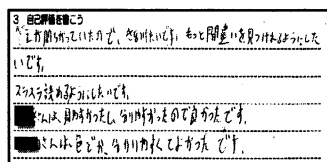 3 自己評価を書こう
字が間ちがっていたので、きをつけたいです。もっと間違いを見つけれるようにした
いです。
スラスラ読めるようにしたいです。
さんは、見やすかったし、分りやすかったので良かったです。
さんは、色とか、分かりやすくてよかったです。